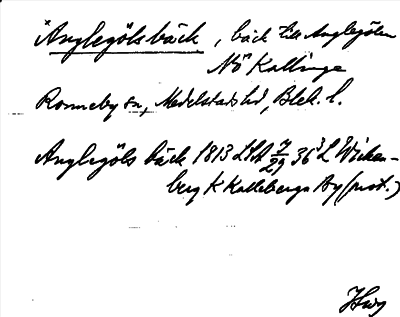 *Änglegölsbäck, bäck till Änglegölen
NÖ Kallinge
Ronneby sn, Medelstads hd, Blek. l.
Änglegöls bäck 1813 LSA 7/29 36 L Wicken-
berg K Kallebergs By (prot.)